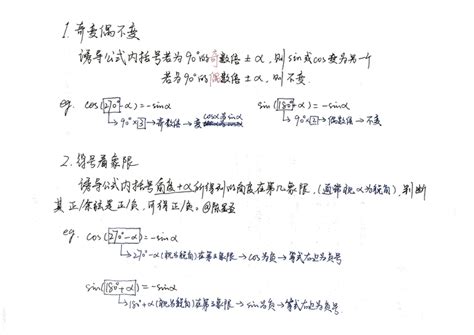 1. 奇变偶不变
诱导公式内括号若为90°的奇数倍±α,则sin或cos变为另一个
若为90°的偶数倍±α,则不变.
eg. cos(270°-α)=-sinα
sin(180°+α)=-sinα
↳90°×3→奇数倍→变cosα为sinα
↳90°×2→偶数倍→不变
2. 符号看象限
诱导公式内括号角度+α所得到的角度在第几象限,(通常视α为锐角),判断
其正/余弦是正/负,可得正/负。@陈
eg. cos(270°-α)=-sinα
↳270°-α(视α为锐角)在第三象限→cos为负→等式右边为负号
sin(180°+α)=-sinα
↳180°+α(视α为锐角)在第三象限→sin为负→等式右边为负号